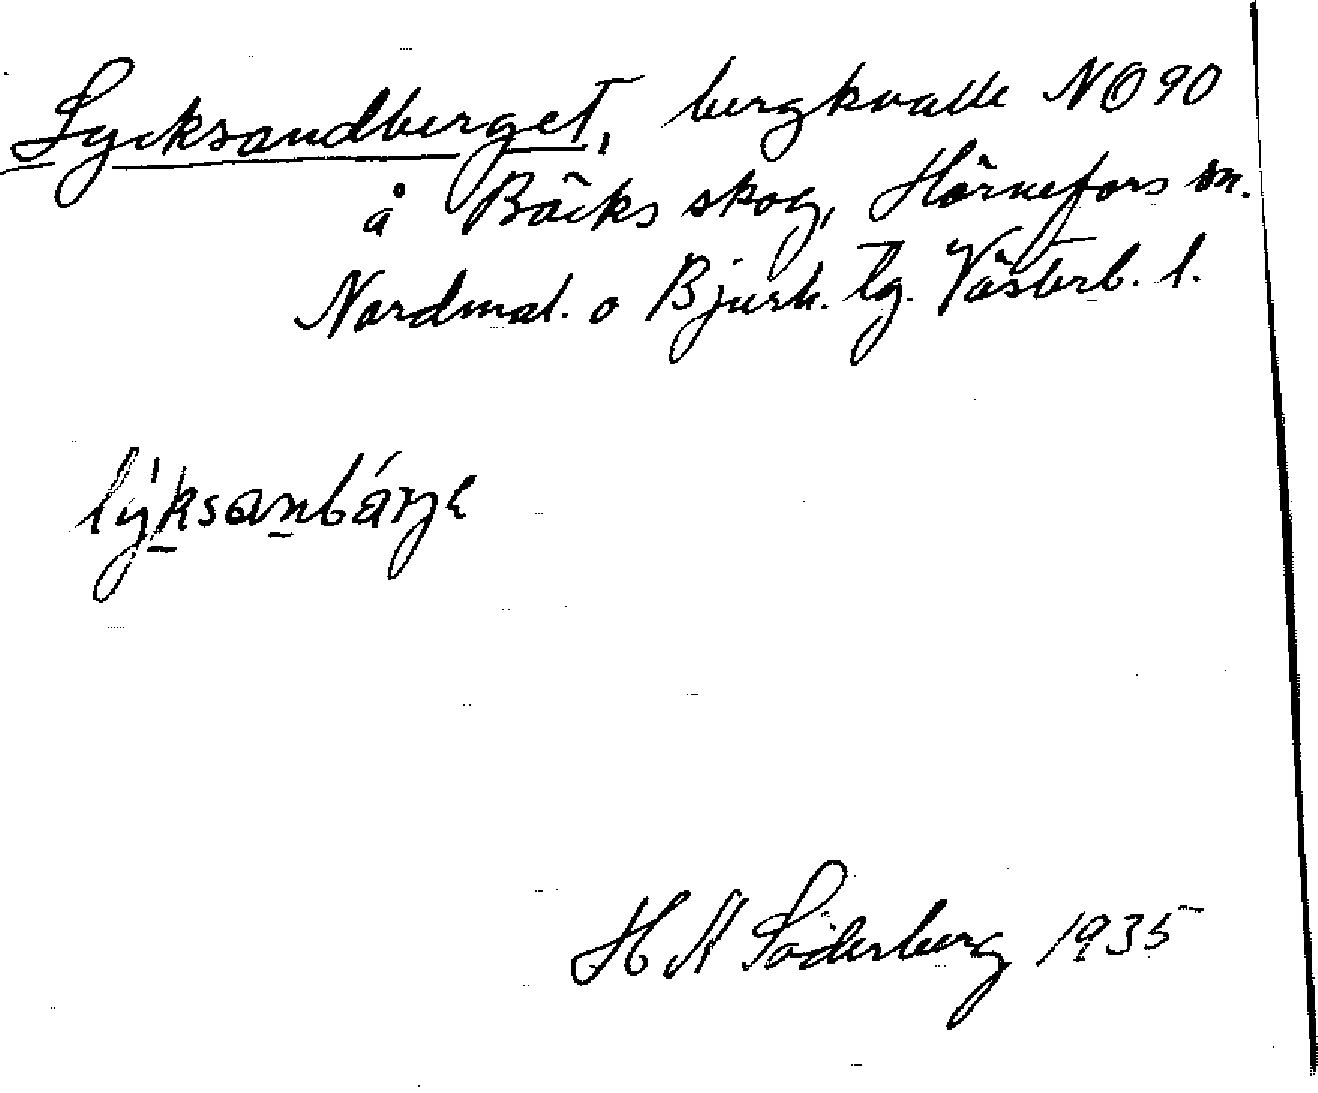 Lycksandberget, bergknalle NO 90
å Bäcks skog, Hörnefors sn.
Nordmal. o Bjurh. tg. Västerb. l.
lýksanbárje
H A Söderberg 1935